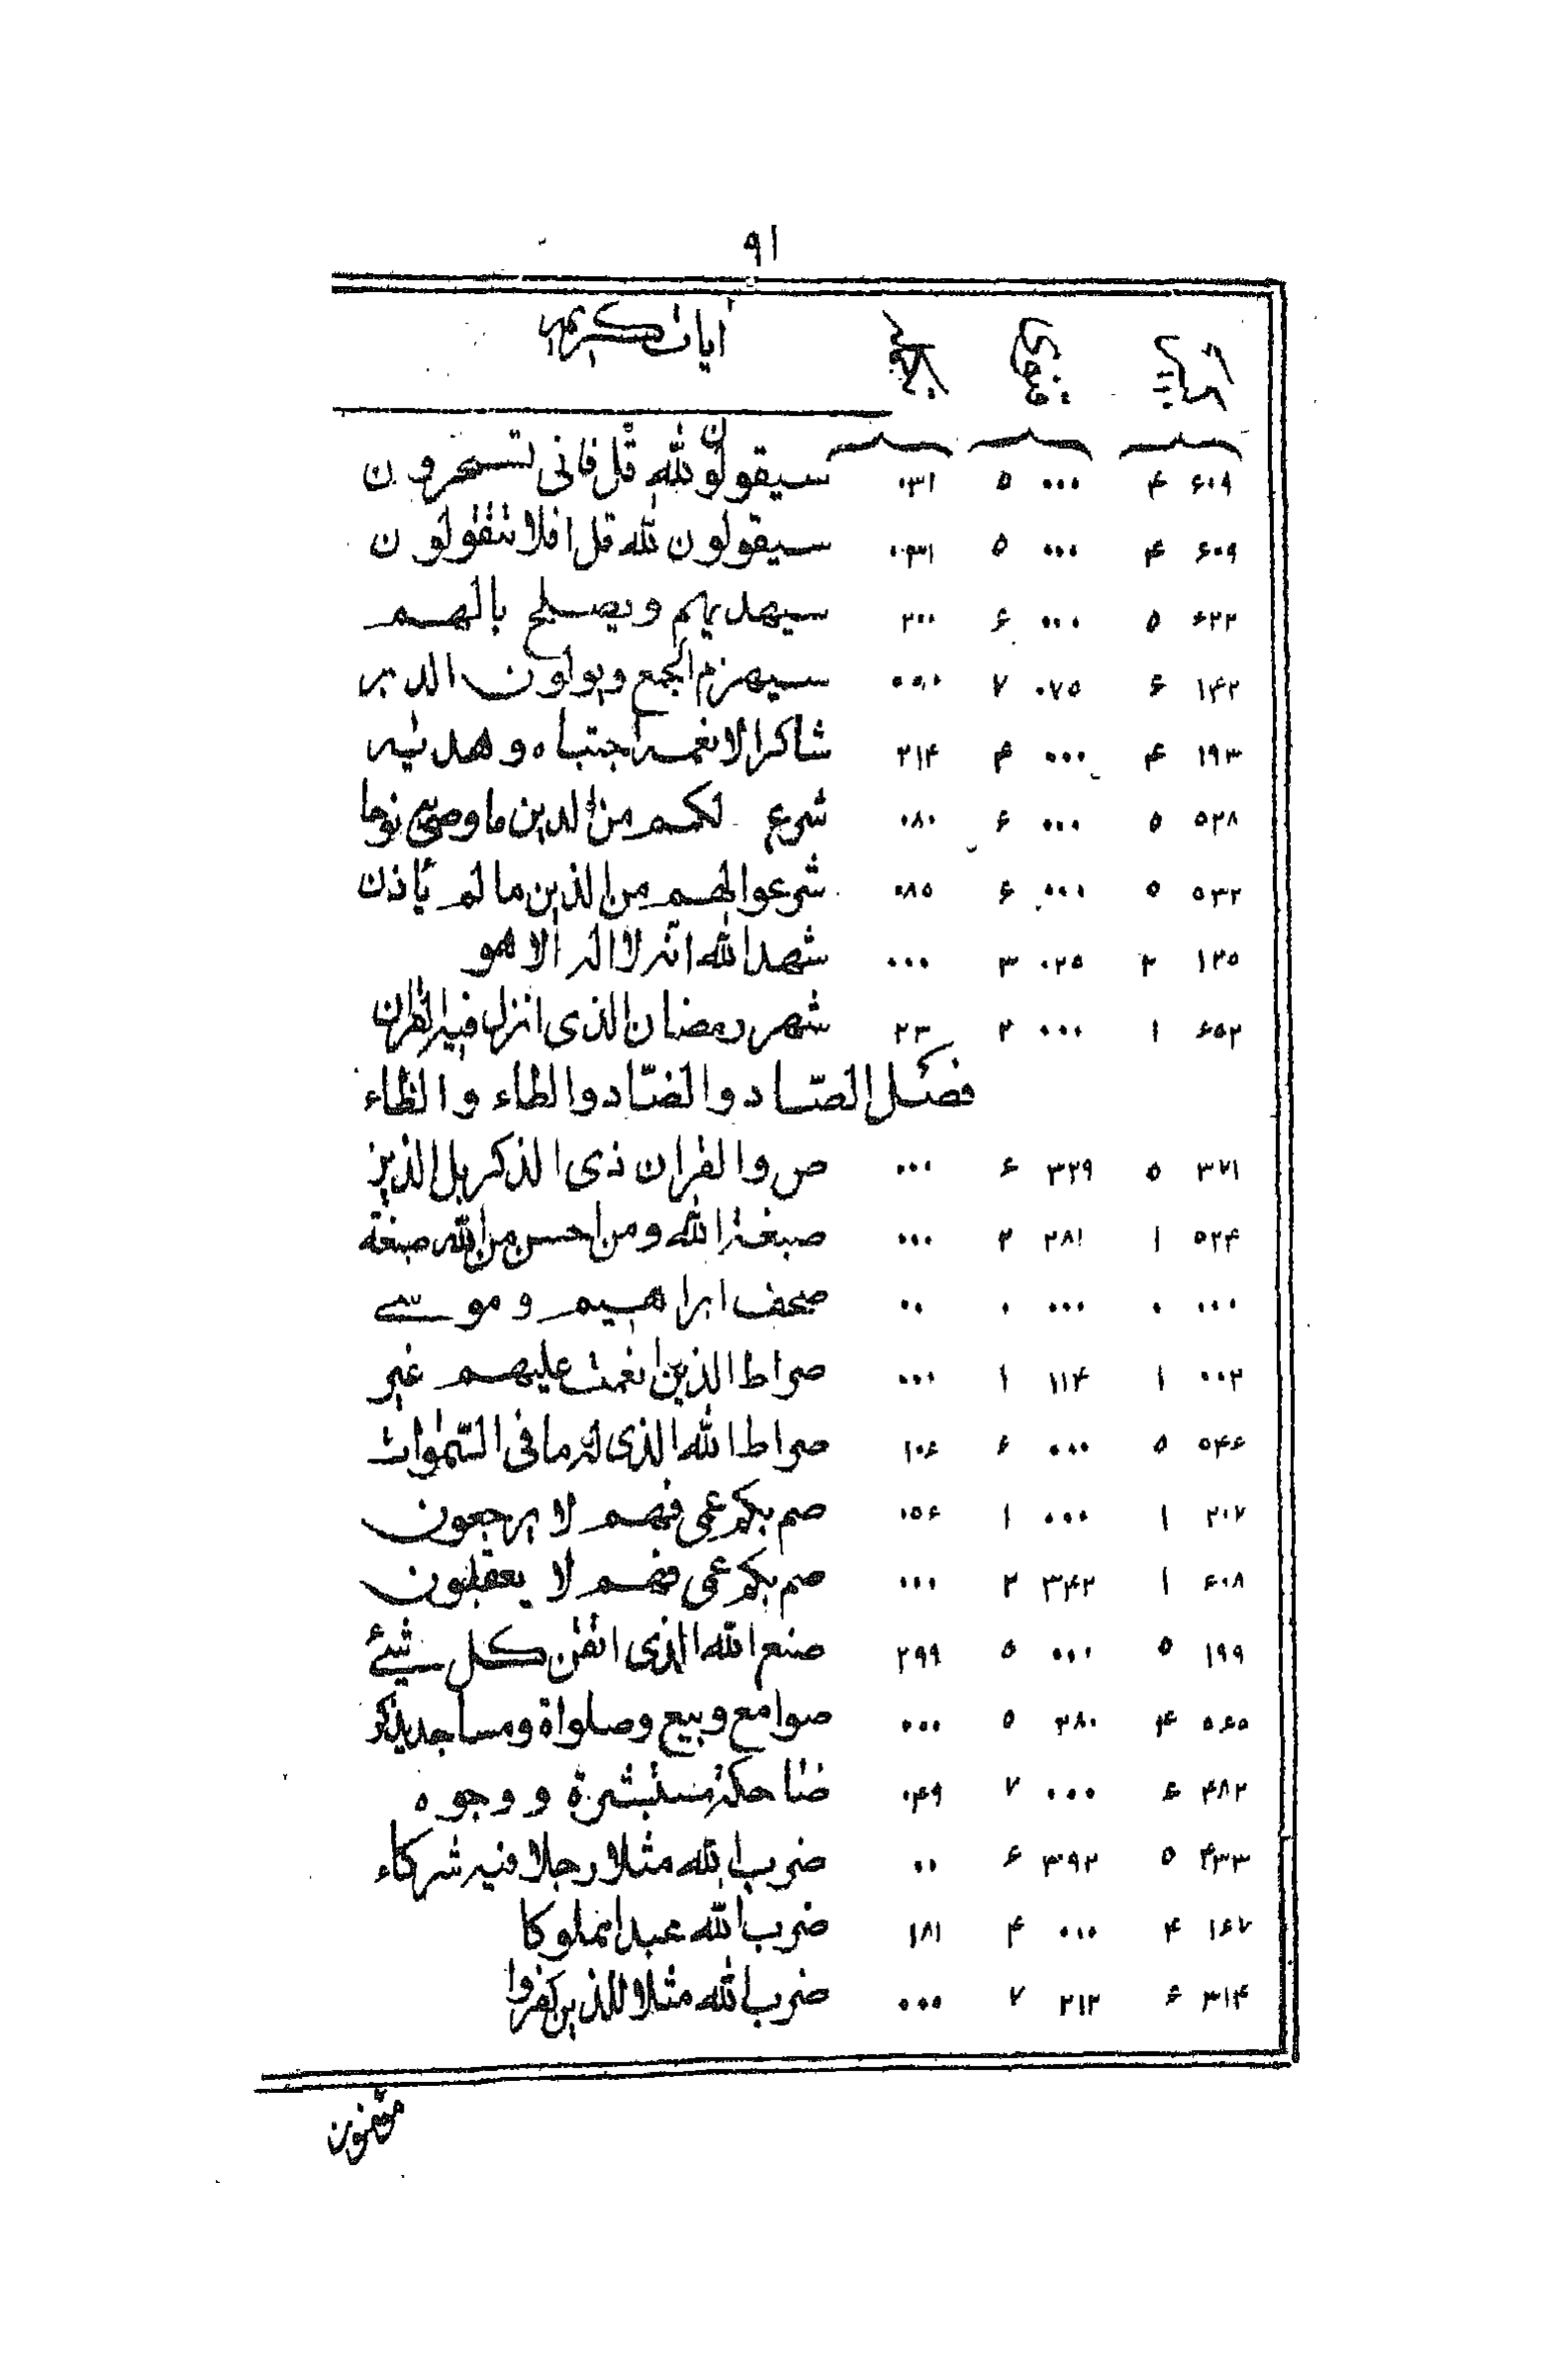 ۹۱
آیات کریمه
۶۰۹ ۴ ۰۰۰ ۵ ۰۳۱ سیقولون لله قل فانی تسحرون
۶۰۹ ۴ ۰۰۰ ۵ ۰۳۱ سیقولون لله قل افلا تتقولون
۶۲۲ ۵ ۰۰۰ ۶ ۲۰۰ سیهدیهم ویصلح بالهم
۱۴۲ ۶ ۰۷۵ ۷ سیهزم الجمع ویولون الدبر
۱۹۳ ۴ ۰۰۰ ۴ ۲۱۴ شاکرا لانعمه اجتباه وهدیٰه
۵۲۸ ۵ ۰۰۰ ۶ ۰۸۰ شرع لکم من الدین ما وصی نوحا
۵۳۲ ۵ ۰۰۰ ۶ ۰۸۵ شرعوا لهم من الدین ما لم یأذن
۱۲۵ ۲ ۰۲۵ ۳ ۰۰۰ شهد الله انه لا اله الا هو
۶۵۲ ۱ ۰۰۰ ۲ ۲۳ شهر رمضان الذی انزل فیه القران
فصل الصّاد والضّاد والطاء والظاء
۳۷۱ ۵ ۳۲۹ ۶ ۰۰۰ ص والقران ذی الذکر بل الذین
۵۲۴ ۱ ۲۸۱ ۲ ۰۰۰ صبغة الله ومن احسن من الله صبغة
۰۰۰ ۰ ۰۰۰ ۰ ۰۰ صحف ابراهیم و موسے
۰۰۲ ۱ ۱۱۴ ۱ ۰۰۰ صراط الذین انعمت علیهم غیر
۵۴۶ ۵ ۰۰۰ ۶ ۱۰۶ صراط الله الذی له ما فی السّمٰوات
۲۰۷ ۱ ۰۰۰ ۱ ۰۵۶ صم بکم عمی فهم لا یرجعون
۶۰۸ ۱ ۳۴۲ ۲ ۰۰۰ صم بکم عمی فهم لا یعقلون
۱۹۹ ۵ ۰۰۰ ۵ ۲۹۹ صنع الله الذی اتقن کل شیئے
۵۶۵ ۴ ۳۸۰ ۵ ۰۰۰ صوامع وبیع وصلواة ومساجد یذکر
۴۸۲ ۶ ۰۰۰ ۷ ۰۴۹ ضاحکة مستبشرة و وجوه
۴۳۳ ۵ ۳۹۲ ۶ ۰۰ ضرب الله مثلا رجلا فیه شرکاء
۱۶۷ ۴ ۰۰۰ ۴ ۱۸۱ ضرب الله عبدا مملوکا
۳۱۴ ۶ ۲۱۲ ۷ ۰۰۰ ضرب الله مثلا للذین کفروا